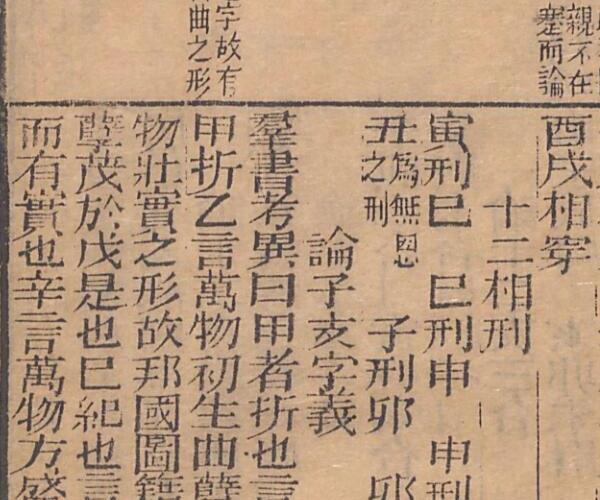 親不在
蹇而論
字故有
曲之形
酉戌相穿
十二相刑
寅刑巳 巳刑申 申刑
丑為無㤙之刑 子刑卯 卯
論子亥字義
羣書考異曰甲者折也言
甲折乙言萬物初生曲蘖
物壯實之形故邦國圖籍
孽茂於戊是也巳紀也言
而有實也辛言萬物方盛